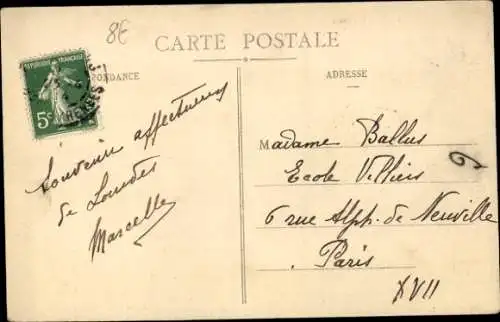 8€
CARTE POSTALE
RÉPUBLIQUE FRANÇAISE
5c
PONDANCE
ADRESSE
Souvenir affectueux
de Lourdes
Marcelle
Madame Ballus
Ecole Villiers
6 rue Alph. de Neuville
Paris
XVII